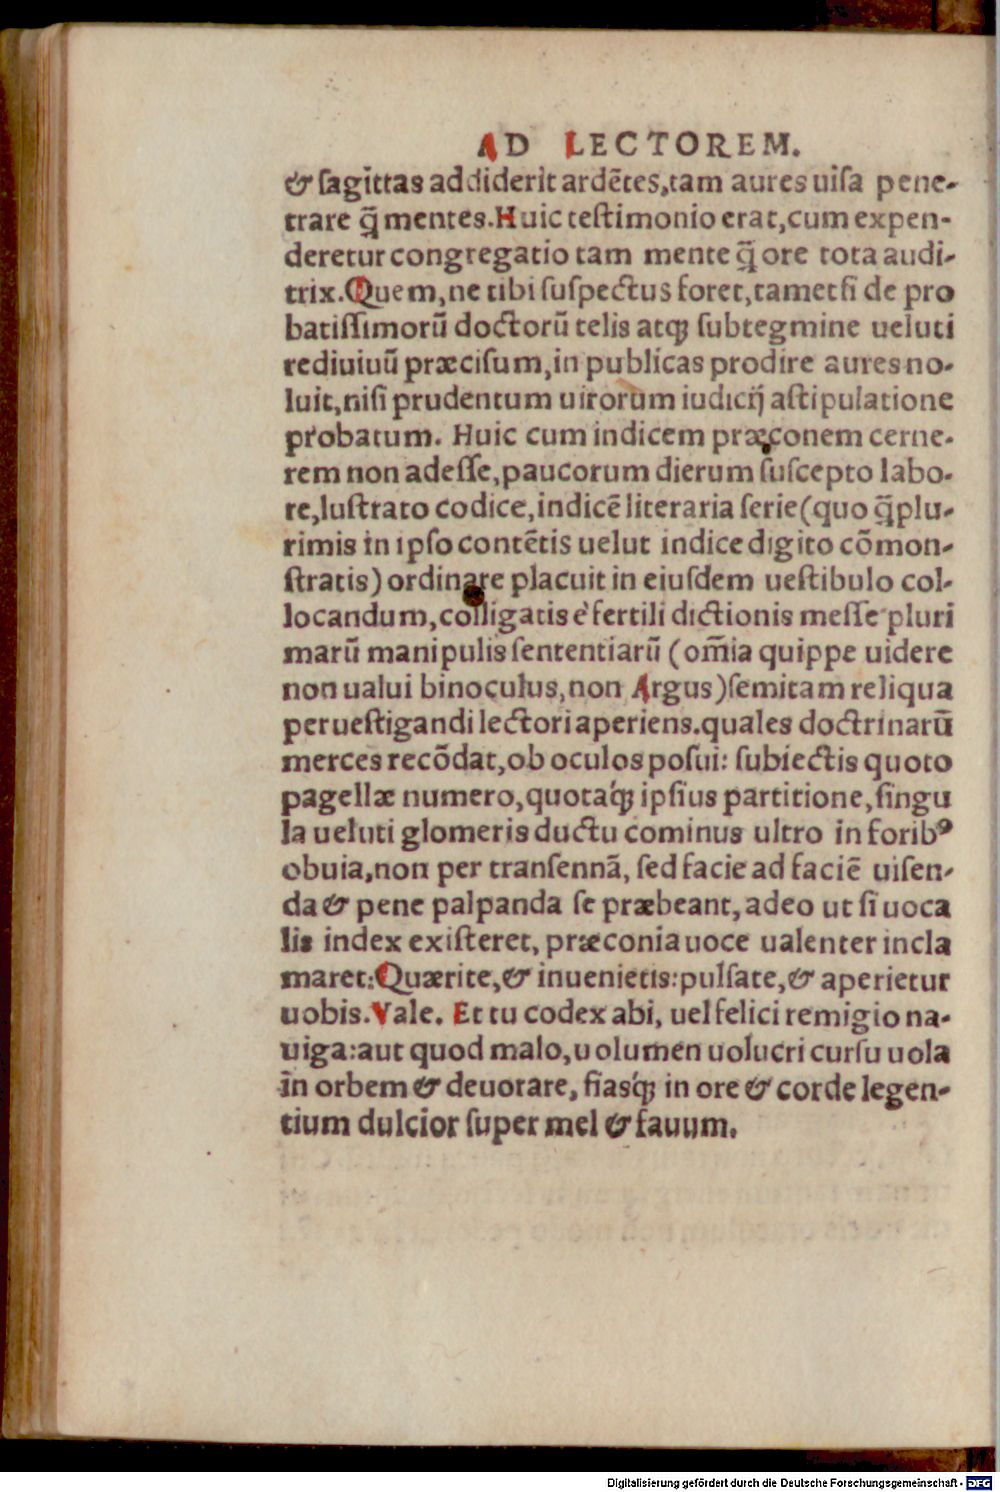 AD LECTOREM.
& ſagittas addiderit ardētes,tam aures uiſa pene-
trare q̃ mentes.Huic teſtimonio erat,cum expen-
deretur congregatio tam mente q̃ ore tota audi-
trix.Quem,ne tibi ſuſpectus foret,tametſi de pro
batiſſimorū doctorū telis atq; ſubtegmine ueluti
rediuiuū præciſum,in publicas prodire aures no-
luit,niſi prudentum uirorum iudicij aſtipulatione
probatum. Huic cum indicem præconem cerne-
rem non adeſſe,paucorum dierum ſuſcepto labo-
re,luſtrato codice,indicē literaria ſerie(quo q̃plu-
rimis in ipſo contētis uelut indice digito cōmon-
ſtratis) ordinare placuit in eiuſdem ueſtibulo col-
locandum,colligatis è fertili dictionis meſſe pluri
marū manipulis ſententiarū (om̄ia quippe uidere
non ualui binoculus,non Argus)ſemitam reliqua
perueſtigandi lectori aperiens.quales doctrinarū
merces recōdat,ob oculos poſui: ſubiectis quoto
pagellæ numero,quotaq́; ipſius partitione,ſingu
la ueluti glomeris ductu cominus ultro in foribꝰ
obuia,non per tranſennā, ſed facie ad faciē uiſen-
da & pene palpanda ſe præbeant, adeo ut ſi uoca
lis index exiſteret, præconia uoce ualenter incla
maret:Quærite,& inuenietis:pulſate,& aperietur
uobis.Vale. Et tu codex abi, uel felici remigio na-
uiga:aut quod malo,uolumen uolucri curſu uola
in orbem & deuorare, fiasq́; in ore & corde legen-
tium dulcior ſuper mel & fauum.
Digitalisierung gefördert durch die Deutsche Forschungsgemeinschaft - DFG